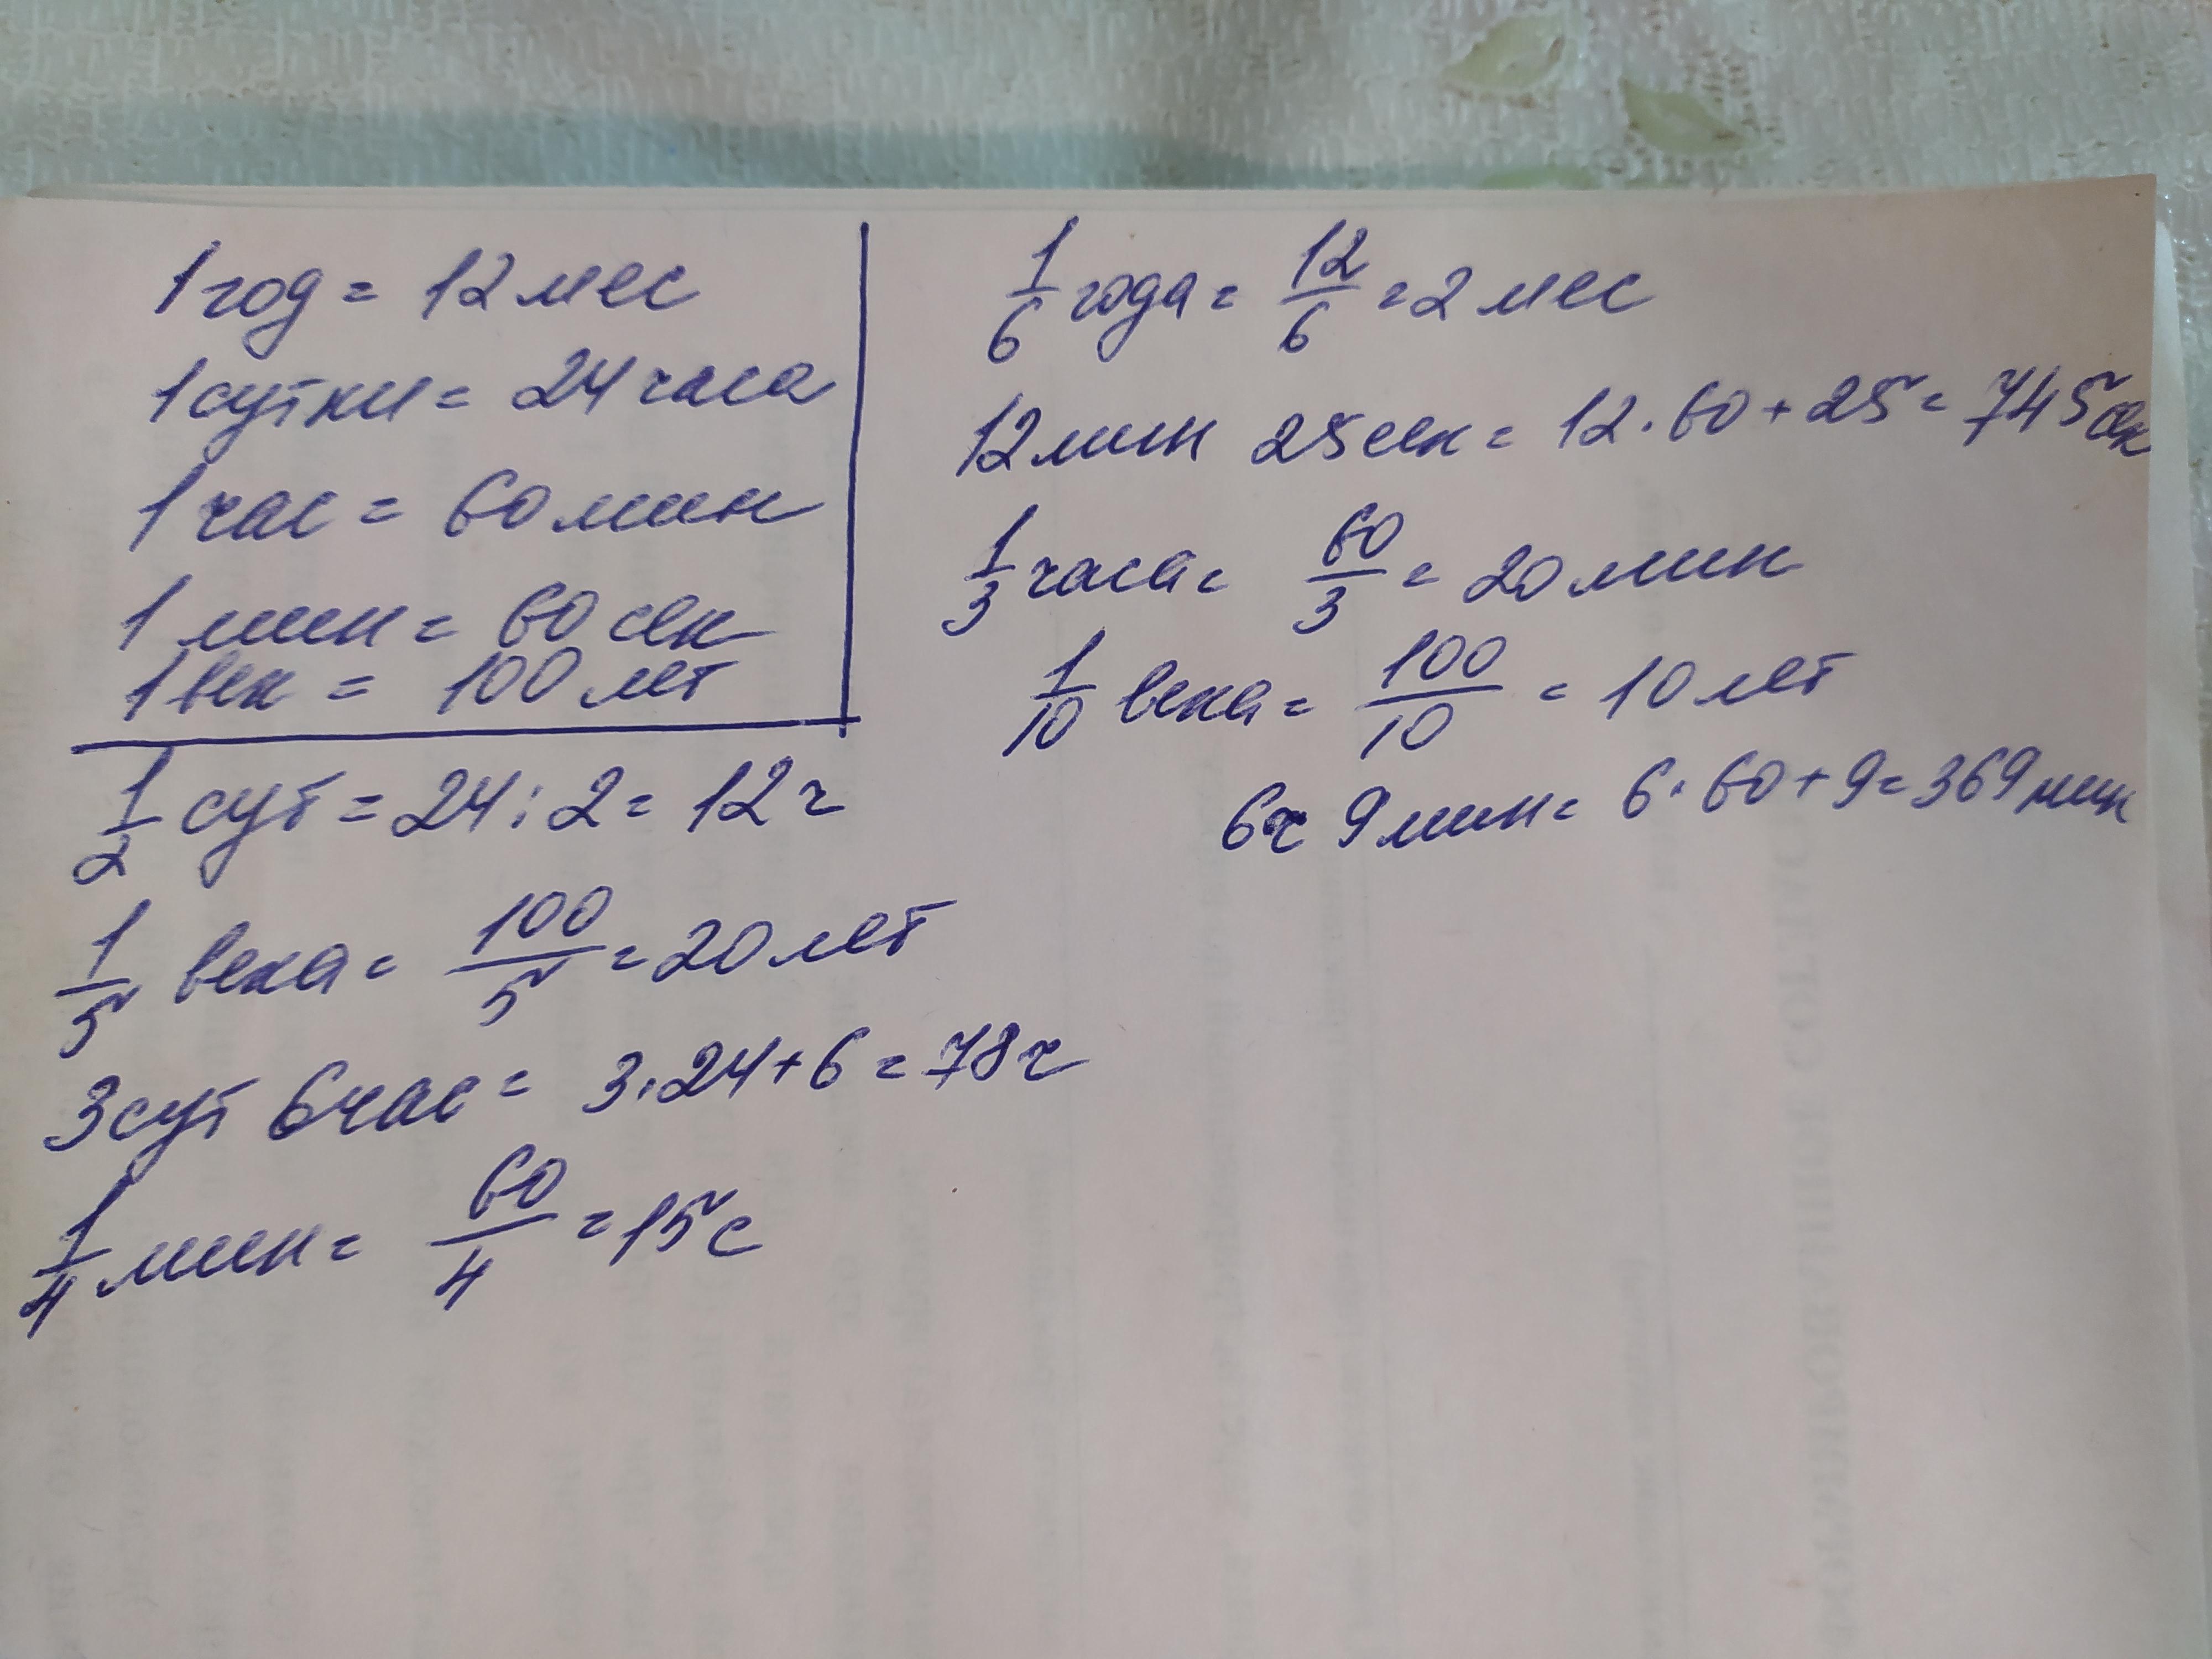 1 год = 12 мес
1 сутки = 24 часа
1 час = 60 мин
1 мин = 60 сек
1 век = 100 лет
1/2 сут = 24 : 2 = 12 ч
1/5 века = 100/5 = 20 лет
3 сут 6 час = 3 · 24 + 6 = 78 ч
1/4 мин = 60/4 = 15 с
1/6 года = 12/6 = 2 мес
12 мин 25 сек = 12 · 60 + 25 = 745 сек
1/3 часа = 60/3 = 20 мин
1/10 века = 100/10 = 10 лет
6 ч 9 мин = 6 · 60 + 9 = 369 мин